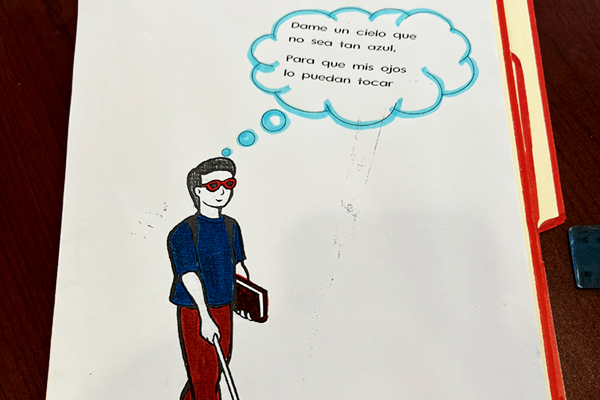 Dame un cielo que
no sea tan azul,
Para que mis ojos
lo puedan tocar